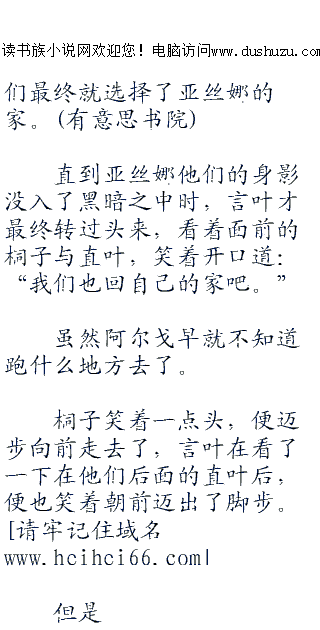 读书族小说网欢迎您！电脑访问www.dushuzu.com
们最终就选择了亚丝娜的
家。(有意思书院)
直到亚丝娜他们的身影
没入了黑暗之中时，言叶才
最终转过头来，看着面前的
桐子与直叶，笑着开口道：
“我们也回自己的家吧。”
虽然阿尔戈早就不知道
跑什么地方去了。
桐子笑着一点头，便迈
步向前走去了，言叶在看了
一下在他们后面的直叶后，
便也笑着朝前迈出了脚步。
[请牢记住域名
www.hcihci66.com|
但是